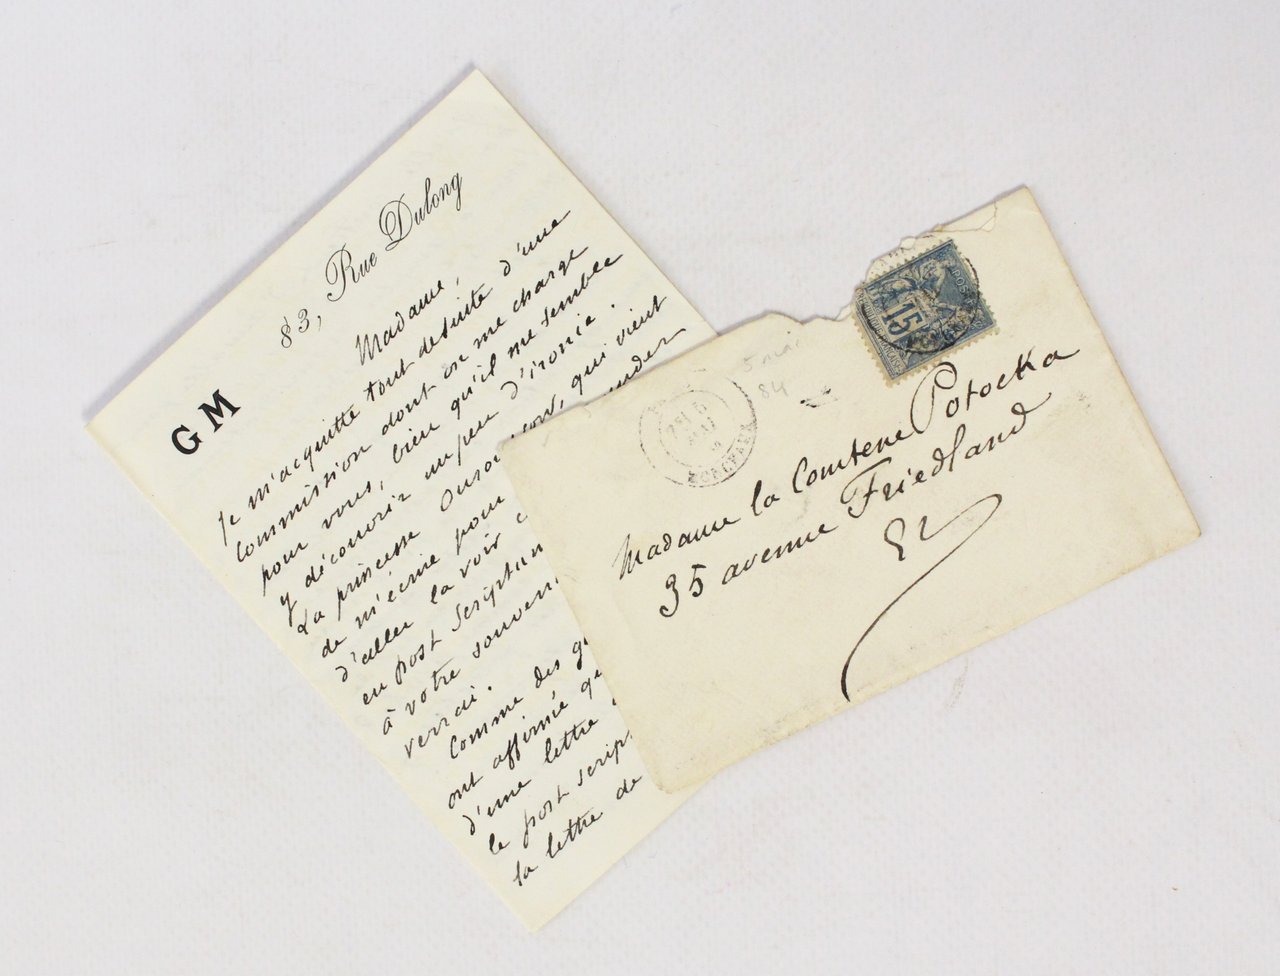 83, Rue Dulong
GM
Madame,
Je m'acquitte tout de suite d'une
commission dont on me charge
pour vous, bien qu'il me semble
y découvrir un peu d'ironie.
La princesse Ourousow, qui vient
de m'écrire pour
d'aller la voir
en post scriptum
à votre souveni
verrai.
Comme des g
ont affirmé qu
d'une lettre
le post scrip
la lettre de
5 mai
84
5
MAI
BORDEAUX
15
POSTES
Madame la Comtesse Potocka
35 avenue Friedland
EV